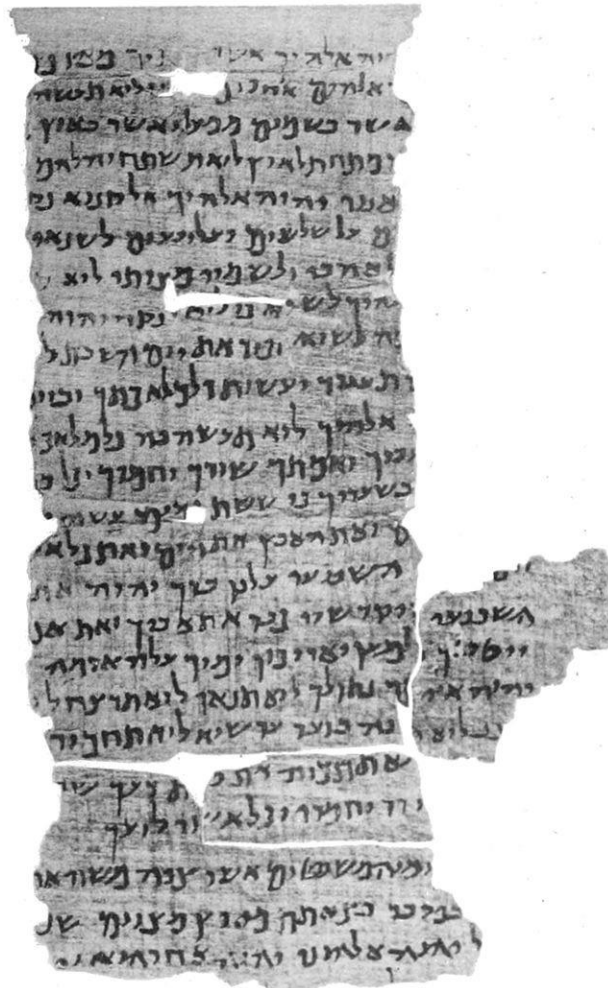 יהוה אלהיך אשר תיך מארץ מ
אלהים אחרים ני לוא תעשה
אשר בשמים ממעל ואשר בארץ
מתחת לארץ לוא תשתחוה להם
אנכי יהוה אלהיך אל קנוא פק
ם על שלשים ועל רבעים לשנאי
לאהבי ולשמרי מצותי לוא
להיך לשוא כי לוא ינקה יהוה
ה לשוא זכור את יום השבת ל
תעבוד ועשית כל מלאכתך וביום
אלהיך לוא תעשה בה כל מלאכה
עבדך ואמתך שורך וחמרך וכל ב
בשעריך כי ששת ימים עשה
ם ואת הארץ את הים ואת כל א
ום השביעי עלכן ברך יהוה את
השביעי ויקדשיו כבד את אביך ואת אמ
ייטב לך ולמען יאריכון ימיך על האדמה
יהוה אלהיך נתן לך לוא תנאף לוא תרצח לו
נב לוא תענה ברעך עד שוא לוא תחמוד
תתאוה את בית רעך שד
ורו וחמרו וכל אשר לרעך
ים והמשפטים אשר צוה משה את
במדבר בצאתם מארץ מצרים שמ
ל יהוה אלהינו יהוה אחד הוא וא